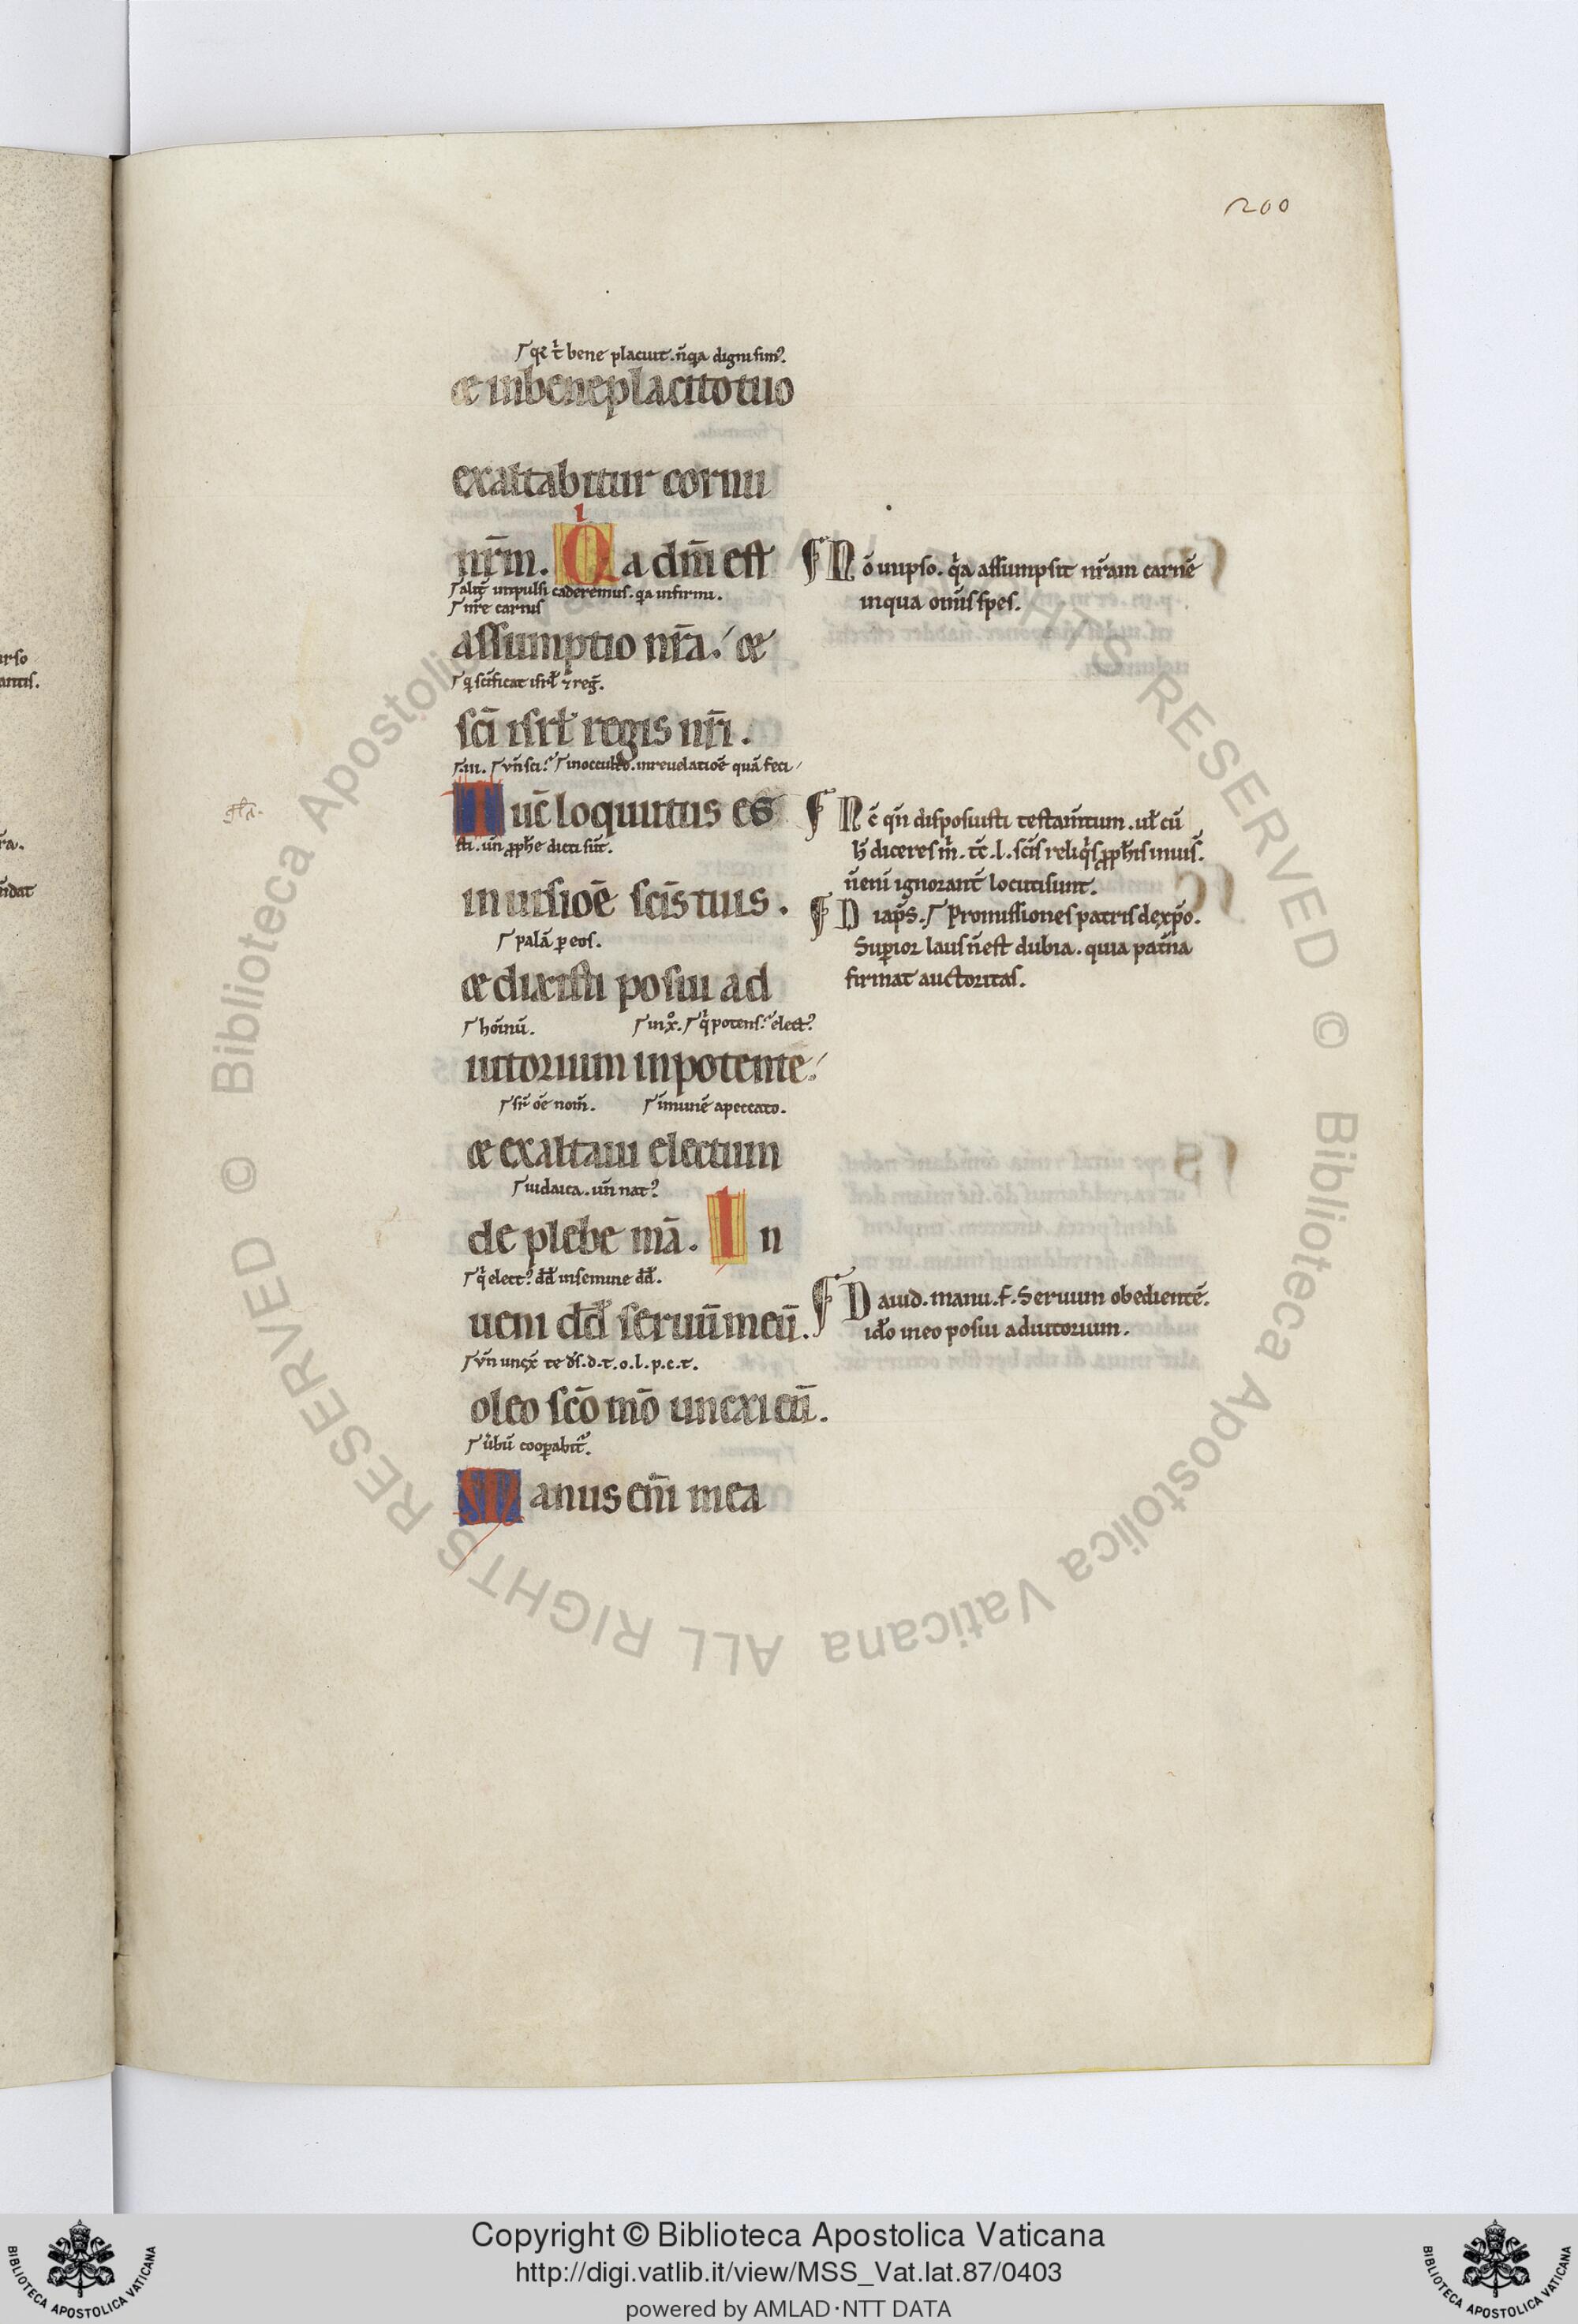 200
q̄ t̄ bene placuit. n̄ qa digni sim᷒.
& in beneplacito tuo
exaltabitur cornu
nr̄m. Qia dn̄i est
impulsi caderemus. qa infirmi.
nr̄e carnis
assumptio nr̄a. &
q scīficat isrł ⁊ reḡ.
scī isrł regis nr̄i.
.iii. vn̄ sci. in occulto. in reuelatiōe quā feci
Tūc loquutus es
sti. un̄ ꝓph̄e dicti sūt.
in uisiōe scīs tuis.
palā ꝑ eos.
& dixisti posui ad
hoīnū. in xͦ. qͥ potens. elect᷒
iutorium in potente
sr̄ ōe nom̄. īmunē a peccato.
& exaltaui electum
iudaica. un̄ nat᷒
de plebe mā. In
qͥ elect᷒ dd̄ in semine dd̄.
ueni dd̄ seruū meū.
vn̄ unx̄ te ds̄. d. t. o. l. p. c. t.
oleo scō mō unexi eū.
ūbū coopabit᷑.
Manus eni᷑ mea
Nō in ipso. qͥa assumpsit nr̄am carnē
in qua om̄is spes.
N c̄ qn̄ disposuisti testam̄tum. ul̄ cū
h̄ diceres m̄. tc̄. l. scīs reliqͥs ꝓph̄is in uis.
n̄ eni ignorant̄ locuti sunt.
Diaps̄. Promissiones patris de xp̄o.
Supior laus n̄ est dubia. quia pat̄na
firmat auctoritas.
Dauid. manu. f. Seruum obedientē.
idō in eo posui adiutorium.
© Biblioteca Apostolica Vaticana ALL RIGHTS RESERVED © Biblioteca Apostolica Vaticana ALL RIGHTS RESERVED
Copyright © Biblioteca Apostolica Vaticana
http://digi.vatlib.it/view/MSS_Vat.lat.87/0403
powered by AMLAD·NTT DATA
BIBLIOTECA APOSTOLICA VATICANA
BIBLIOTECA APOSTOLICA VATICANA